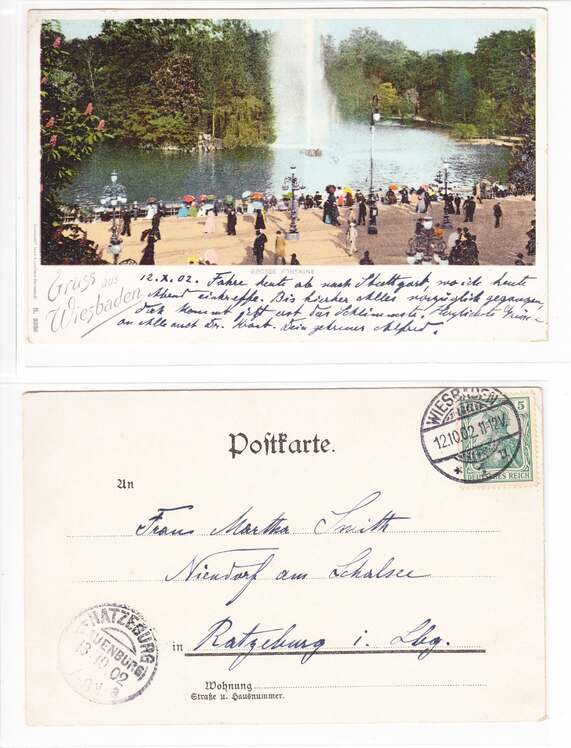 GROSSE FONTAINE
Gruss aus
Wiesbaden
12.X.02. Fahre heute ab nach Stuttgart, wo ich heute
Abend eintreffe. Bis hierher Alles vorzüglich gegangen,
doch kommt jetzt erst das Schlimmste. Herzlichste Grüsse
an Alle auch Dr. Dein getreuer Alfred.
Postkarte.
WIESBADEN
12.10.02. 11-12V.
5
DEUTSCHES REICH
An
Frau Martha Smith
Niendorf am Schalsee
in Ratzeburg i. Lbg.
RATZEBURG
LAUENBURG
13 10 02
Wohnung
Straße u. Hausnummer.